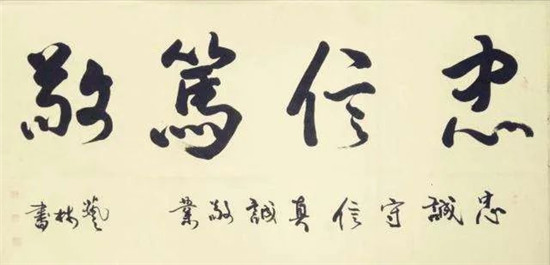 忠信篤敬
忠誠守信真誠敬業 藝林書